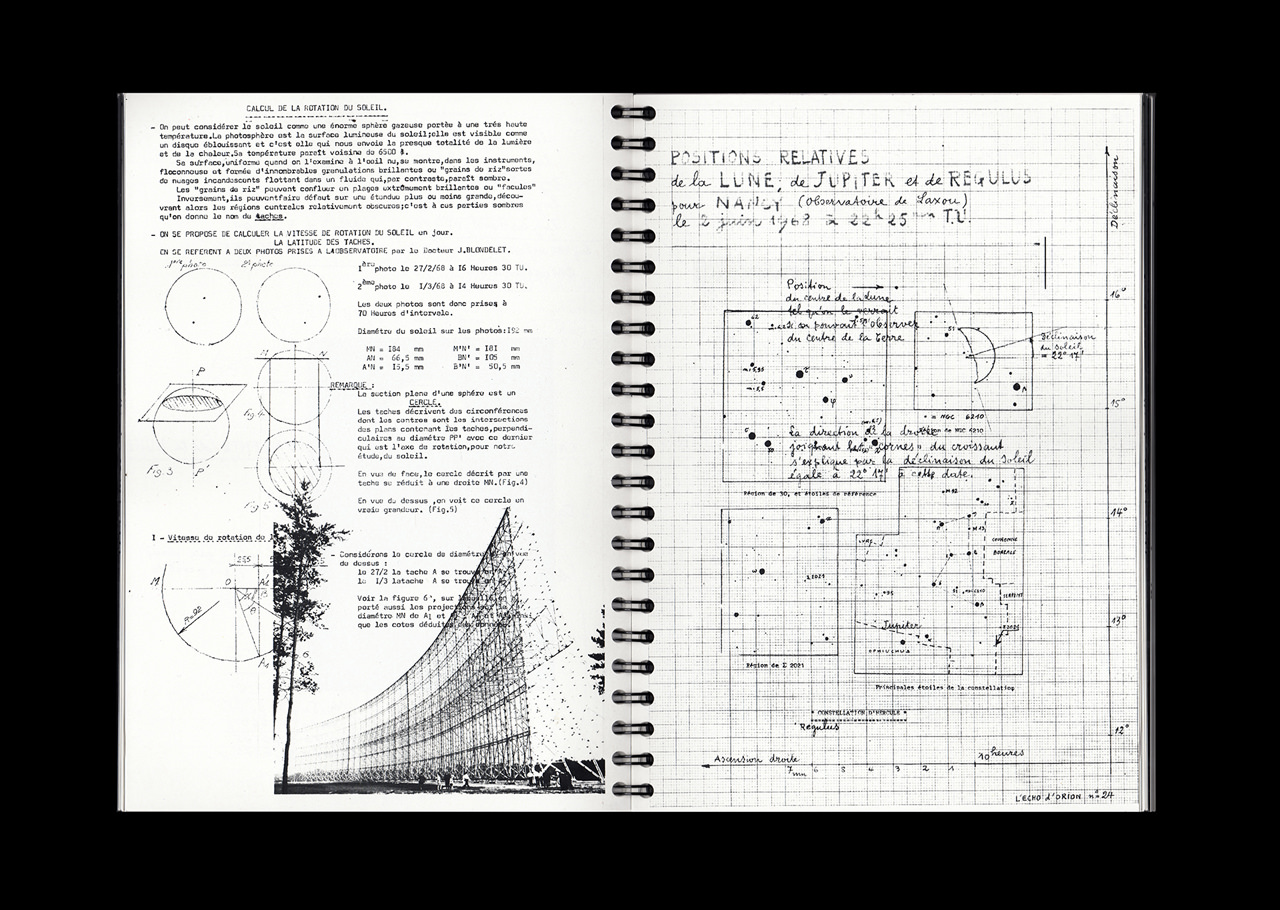 CALCUL DE LA ROTATION DU SOLEIL.
- On peut considérer le soleil comme une énorme sphère gazeuse portée à une trés haute
température.La photosphère est la surface lumineuse du soleil;elle est visible comme
un disque éblouissant et c'est elle qui nous envoie la presque totalité de la lumière
et de la chaleur.Sa température paraît voisine de 6500
Sa surface,uniforme quand on l'examine à l'oeil nu,se montre,dans les instruments,
floconneuse et formée d'innombrables granulations brillantes ou "grains de riz"sortes
de nuages incandescents flottant dans un fluide qui,par contraste,paraît sombre.
Les "grains de riz" peuvent confluer en plages extrêmement brillantes ou "facules"
Inversement,ils peuventfaire défaut sur une étendue plus ou moins grande,décou-
vrant alors les régions centrales relativement obscures;c'est à ces parties sombres
qu'on donne le nom de taches.
- ON SE PROPOSE DE CALCULER LA VITESSE DE ROTATION DU SOLEIL en jour.
LA LATITUDE DES TACHES.
EN SE REFERENT A DEUX PHOTOS PRISES A L'OBSERVATOIRE par le Docteur J.BLONDELET.
1ère photo 2e photo
1ère photo le 27/2/68 à I6 Heures 30 TU.
2ème photo le I/3/68 à I4 Heures 30 TU.
Les deux photos sont donc prises à
70 Heures d'intervalle.
Diamètre du soleil sur les photos:I92 mm
MN = I84 mm M'N' = I8I mm
AN = 66,5 mm BN' = I05 mm
A'N = I5,5 mm B'N' = 50,5 mm
M N
P
REMARQUE :
La section plane d'une sphère est un
CERCLE.
Les taches décrivent des circonférences
dont les centres sont les intersections
des plans contenant les taches,perpendi-
culaires au diamètre PP' avec ce dernier
qui est l'axe de rotation,pour notre
étude,du soleil.
Fig.4
Fig.3
P'
En vue de face,le cercle décrit par une
tache se réduit à une droite MN.(Fig.4)
En vue du dessus ,on voit ce cercle en
vraie grandeur. (Fig.5)
Fig.5
I - Vitesse de rotation de
- Considérons le cercle de diamètre
de dessus :
le 27/2 la tache A se trouve
le I/3 latache A se trou
Voir la figure 6
porté aussi les projec
diamètre MN de A1 et
que les cotes déduites
255
M O
R=92
A1
POSITIONS RELATIVES
de la LUNE, de JUPITER et de REGULUS
pour NANCY (Observatoire de Laxou)
le 2 juin 1968 à 22h 25mn T.U.
Déclinaison
16°
Position
du centre de la lune
tel qu'on le verrait
en pouvant l'observer
du centre de la terre
Déclinaison
du soleil
= 22° 17'
15°
= NGC 6210
Région de NGC 6210
La direction de la droite
joignant les "cornes" du croissant
s'explique par la déclinaison du Soleil
égale à 22° 17' à cette date.
Région de 30, et étoiles de référence
14°
M 92
M 13
COURONNE
BOREALE
SERPENT
Σ 2021
Jupiter
OPHIUCHUS
13°
Région de Σ 2021
Principales étoiles de la constellation
* CONSTELLATION D'HERCULE *
Regulus
12°
Ascension droite
10 heures
7mn 6 5 4 3 2 1
L'ECHO d'ORION n° 24